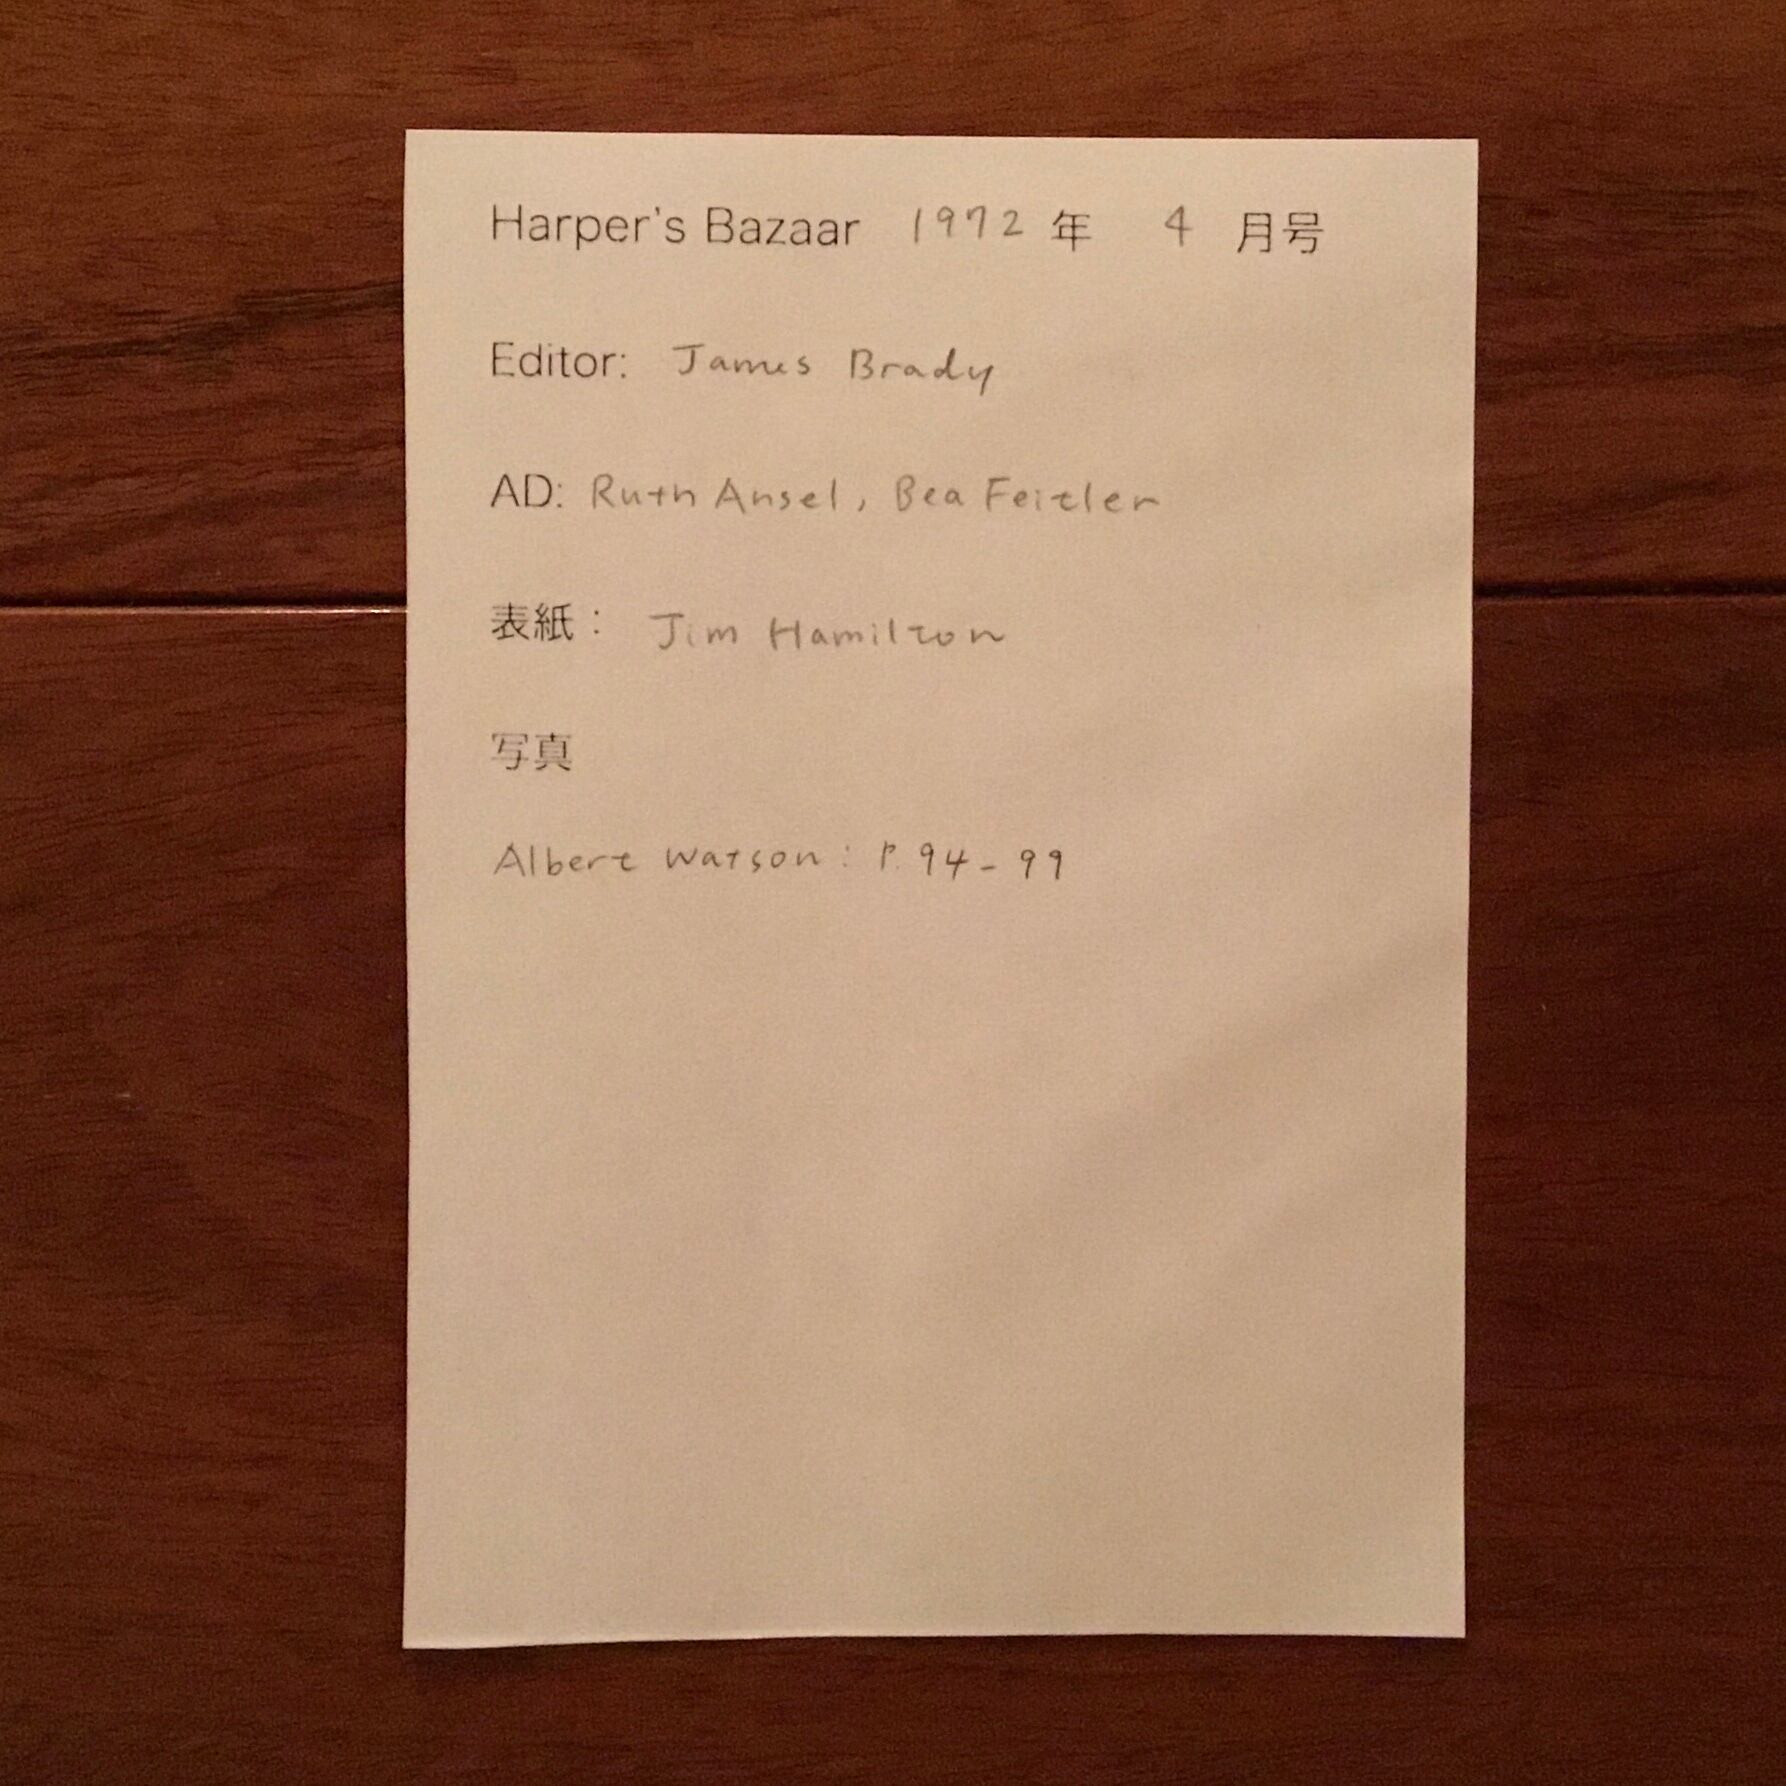 Harper's Bazaar 1972 年 4 月号
Editor: James Brady
AD: Ruth Ansel, Bea Feitler
表紙： Jim Hamilton
写真
Albert Watson: P. 94-99